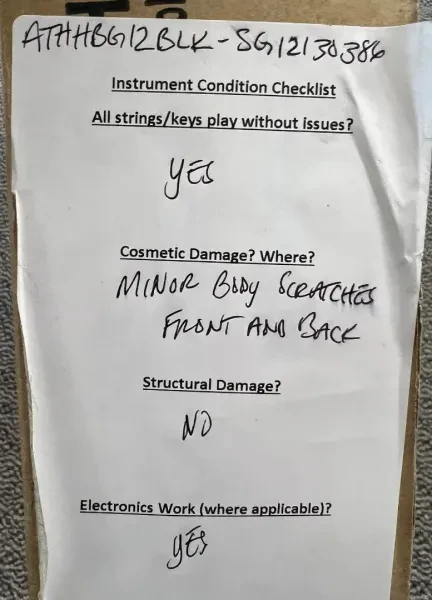 ATHHBG12BLK-SG12130386
Instrument Condition Checklist
All strings/keys play without issues?
YES
Cosmetic Damage? Where?
MINOR BODY SCRATCHES
FRONT AND BACK
Structural Damage?
NO
Electronics Work (where applicable)?
YES